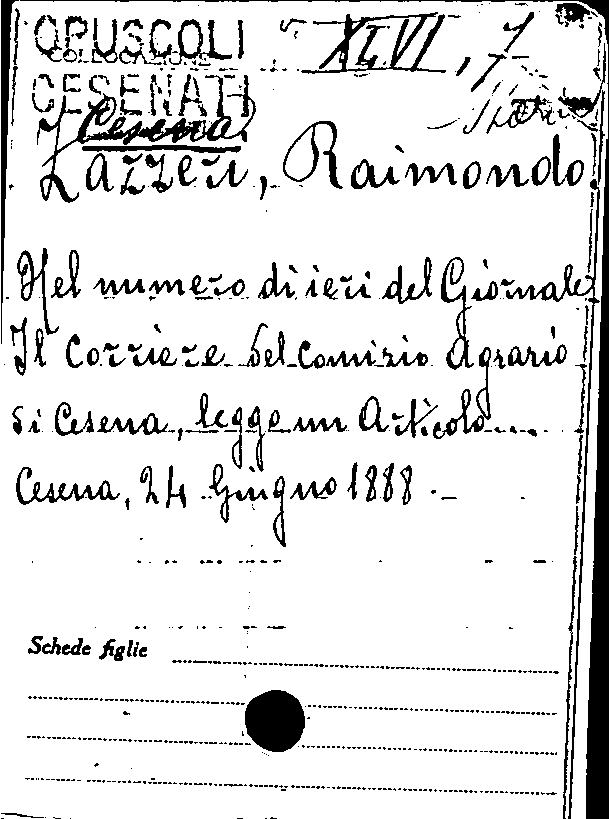 OPUSCOLI
COLLOCAZIONE XLVI, 7
CESENATI
Cesena.
Lazzeri, Raimondo.
Nel numero di ieri del Giornale
Il Corriere del Comizio Agrario
di Cesena, leggo un Articolo....
Cesena, 24 Giugno 1888.
Schede figlie